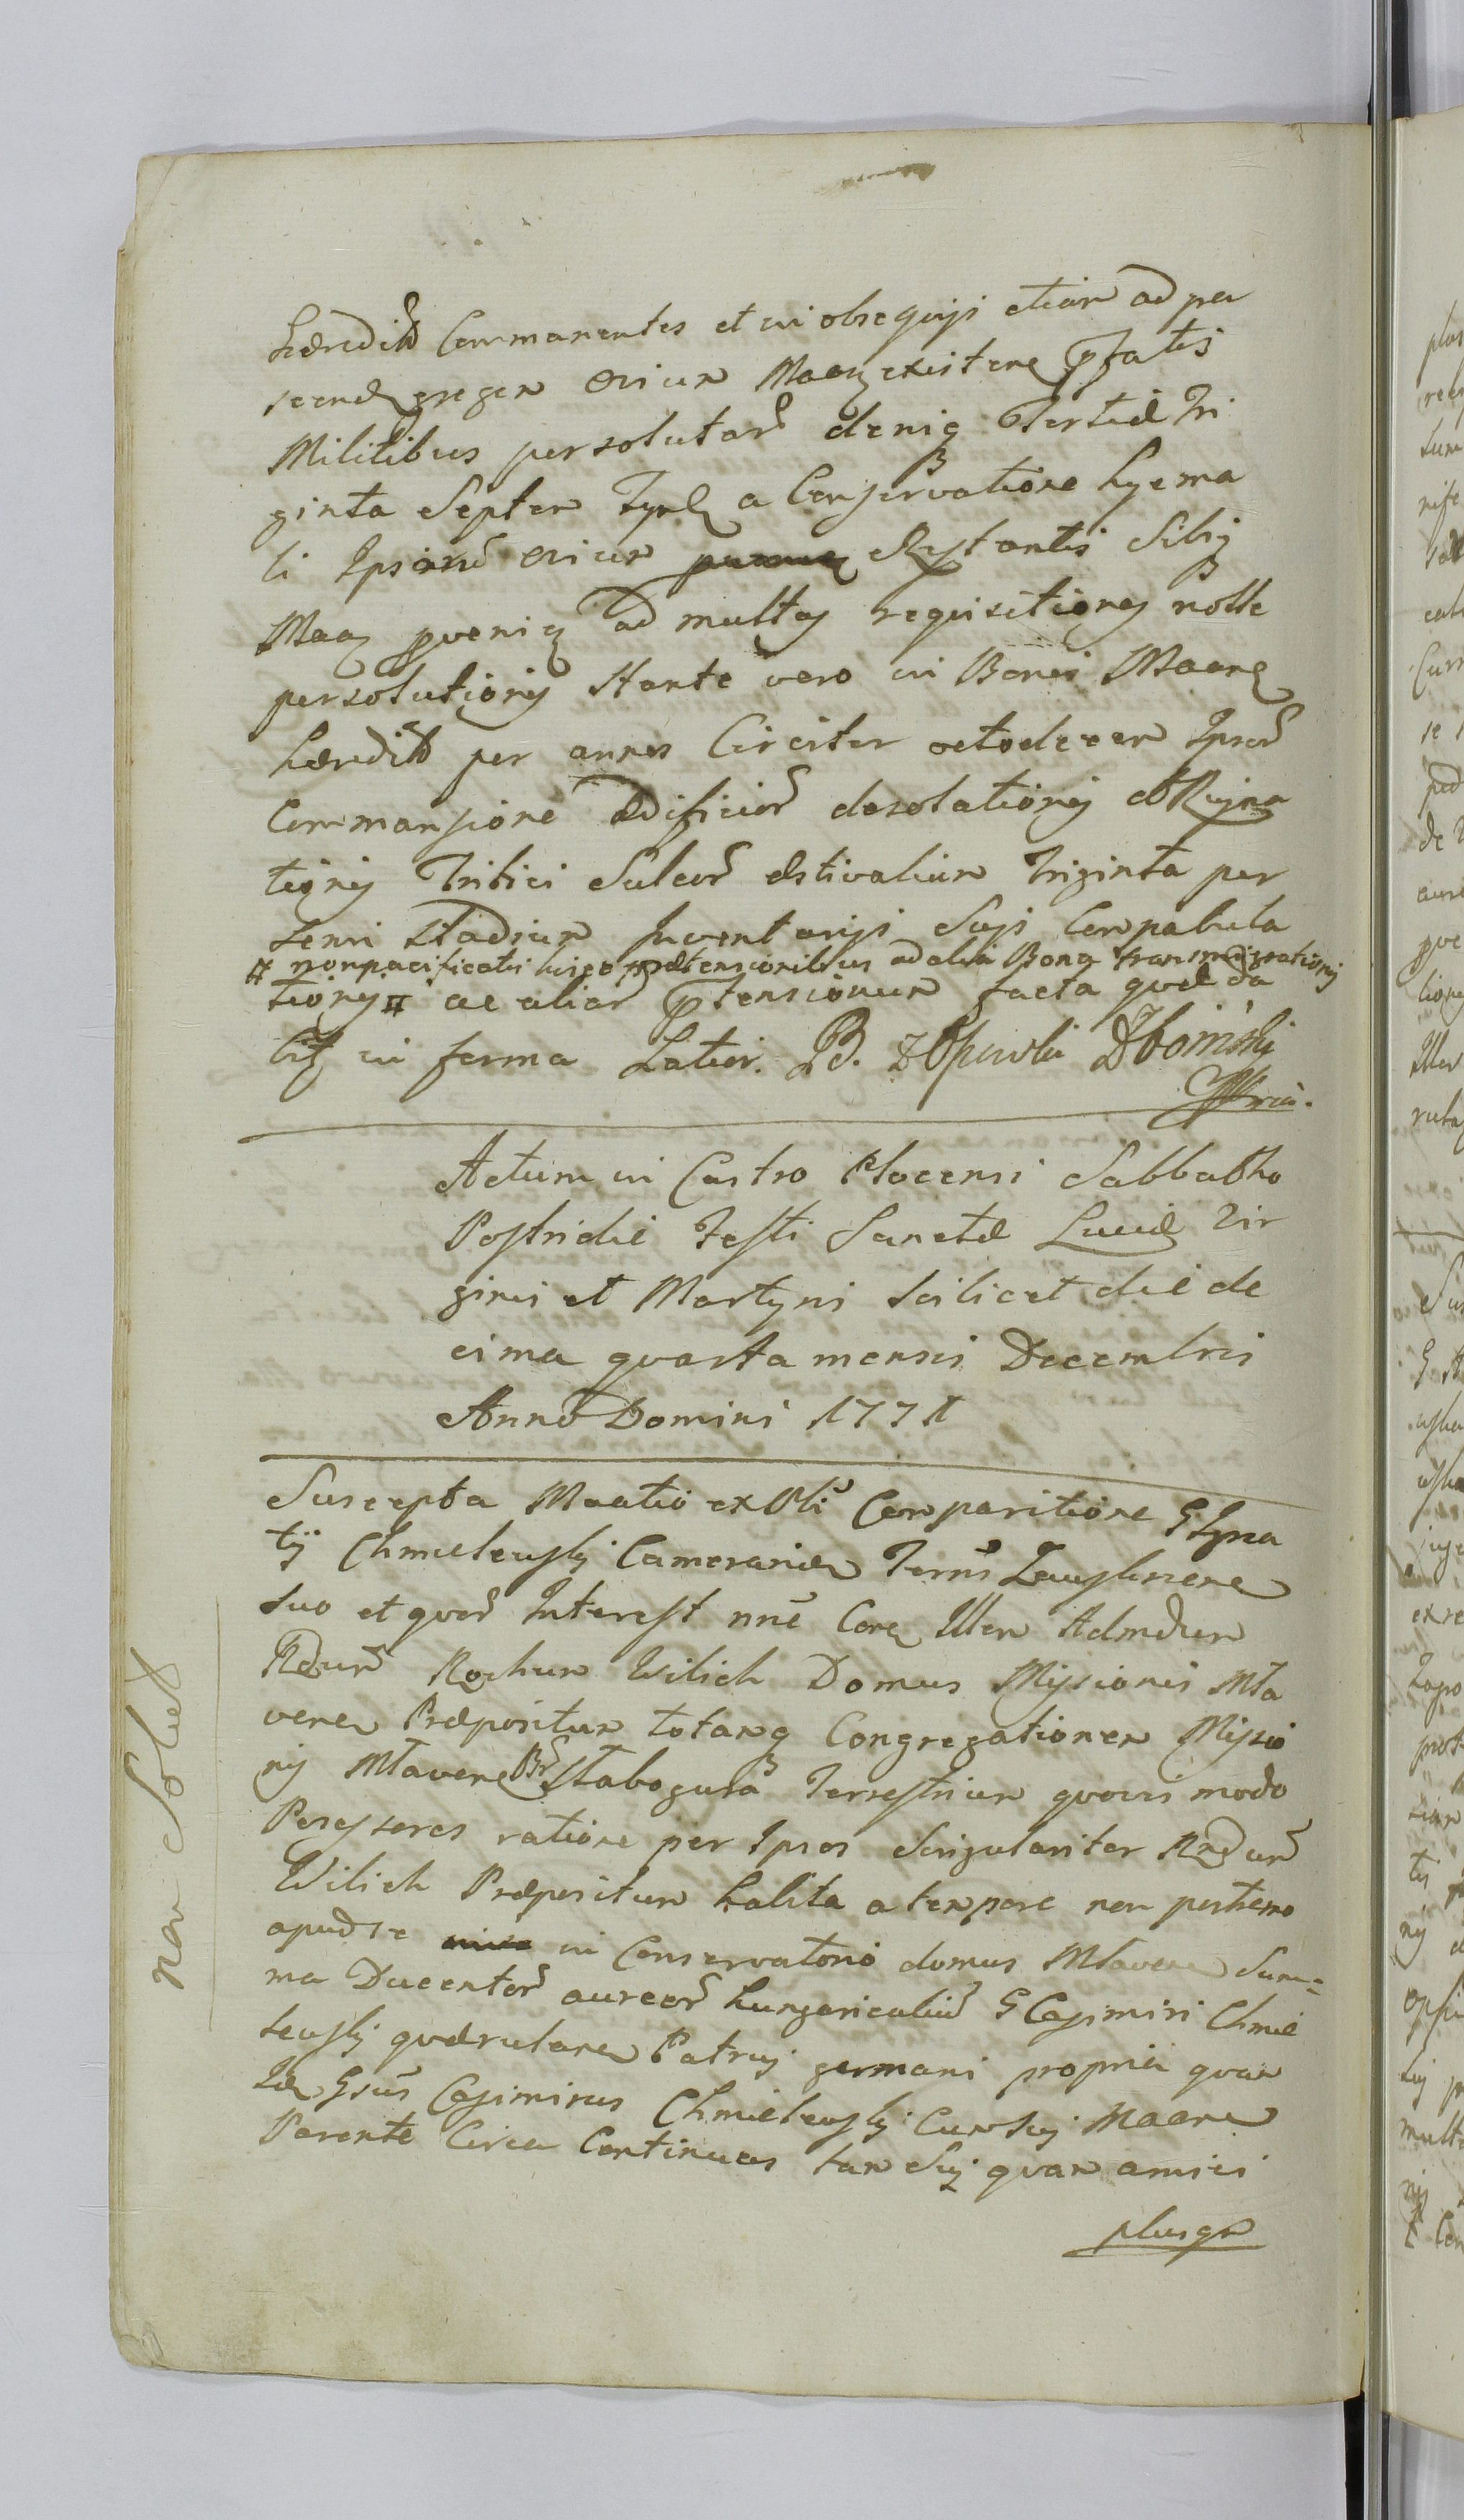 hæredit Commanentes et in obsequijs etiam ad pa
scend gregem Ovium Maaz existen pfatis
Militibus persolutar deniq Tertiæ Tri
ginta Septem Tynf a Conservatione hyema
li Ipsaru Ovium Restantis Sibiq
Maa pveni ad multas requisitiones nolle
persolutionis Stante vero in Bonis Maaen
hærdit per annos Circiter octodecem Ipsor
Commansione Ædificior desolationis et Ruina
tionis Tritici Sulcor Æstivalium Triginta per
Semi Stadium Inventarijs Suis Conpabula
# nonpacificatis hisce prætensionibus ad alia Bona transmigrationis
tionis # ac aliar ptensionum facta quæ da
bit in forma Latior. B. z Opawla Zboiński
Actum in Castro Plocensi Sabbatho
Postridie Festi Sanctæ Luciæ Vir
ginis et Martyris scilicet die de
cima quarta mensis Decembris
Anno Domini 1771
Suscepta Maatio ex Obli Comparitione G Igna
tij Chmielewskj Camerarid Terris Zawskrnen
suo et quor Interest nne Cora Illem Admdum
Rdum Rochum Wilich Domus Missionis Mła
vien Præpositum totamq Congregationem Missio
nis Mlavien Br Stabogura Terrestrium quovis modo
Possessores ratione per Ipsos Singulariter Rndum
Wilich Præpositum habita a tempore non postremo
apud se in Conservatorio domus Mlavien Sum=
ma Ducentor aureor hungaricaliu G Casimiri Chmie
lewskj quærulan Patruj germani proprii quam
Id Gsus Casimirus Chmielewskj Cum Suj Maaen
Parente Circa Continuas tam Suj quam amici
plusqm
non Solut